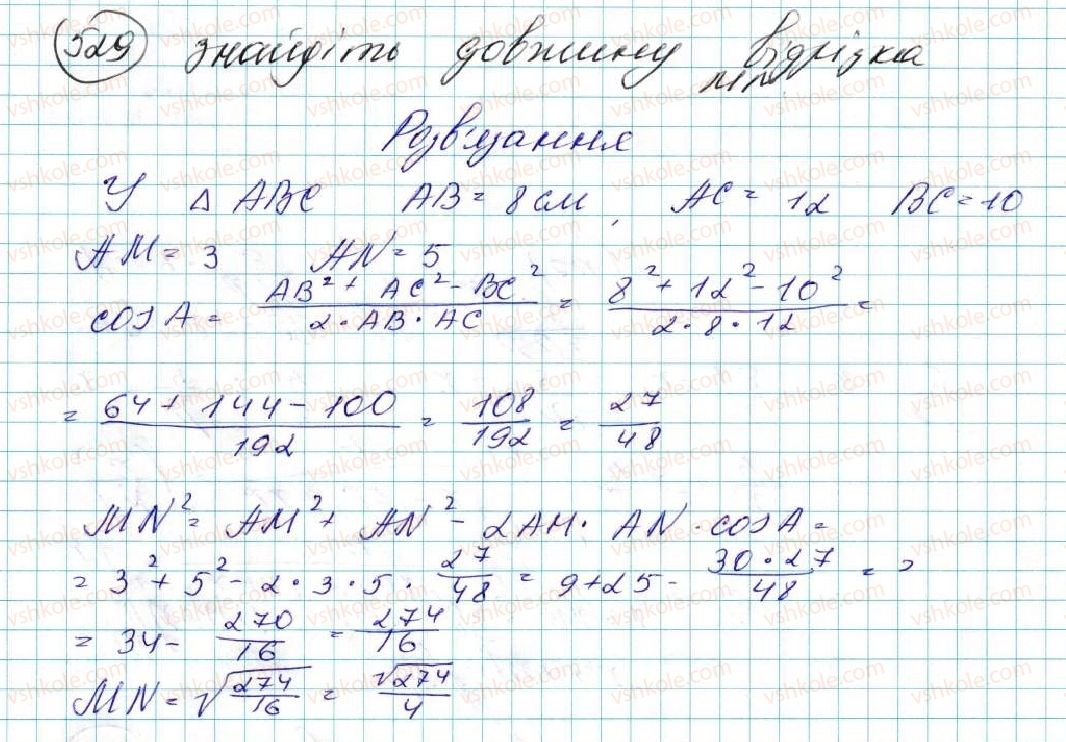 529 знайдіть довжину відрізка
MN
Розв'язання
У △ ABC AB = 8 см, AC = 12 BC = 10
AM = 3 AN = 5
cos A = (AB² + AC² - BC²)/(2 · AB · AC) = (8² + 12² - 10²)/(2 · 8 · 12) =
= (64 + 144 - 100)/192 = 108/192 = 27/48
MN² = AM² + AN² - 2AM · AN · cos A =
= 3² + 5² - 2 · 3 · 5 · 27/48 = 9 + 25 - (30 · 27)/48 =
= 34 - 270/16 = 274/16
MN = √(274/16) = √274/4